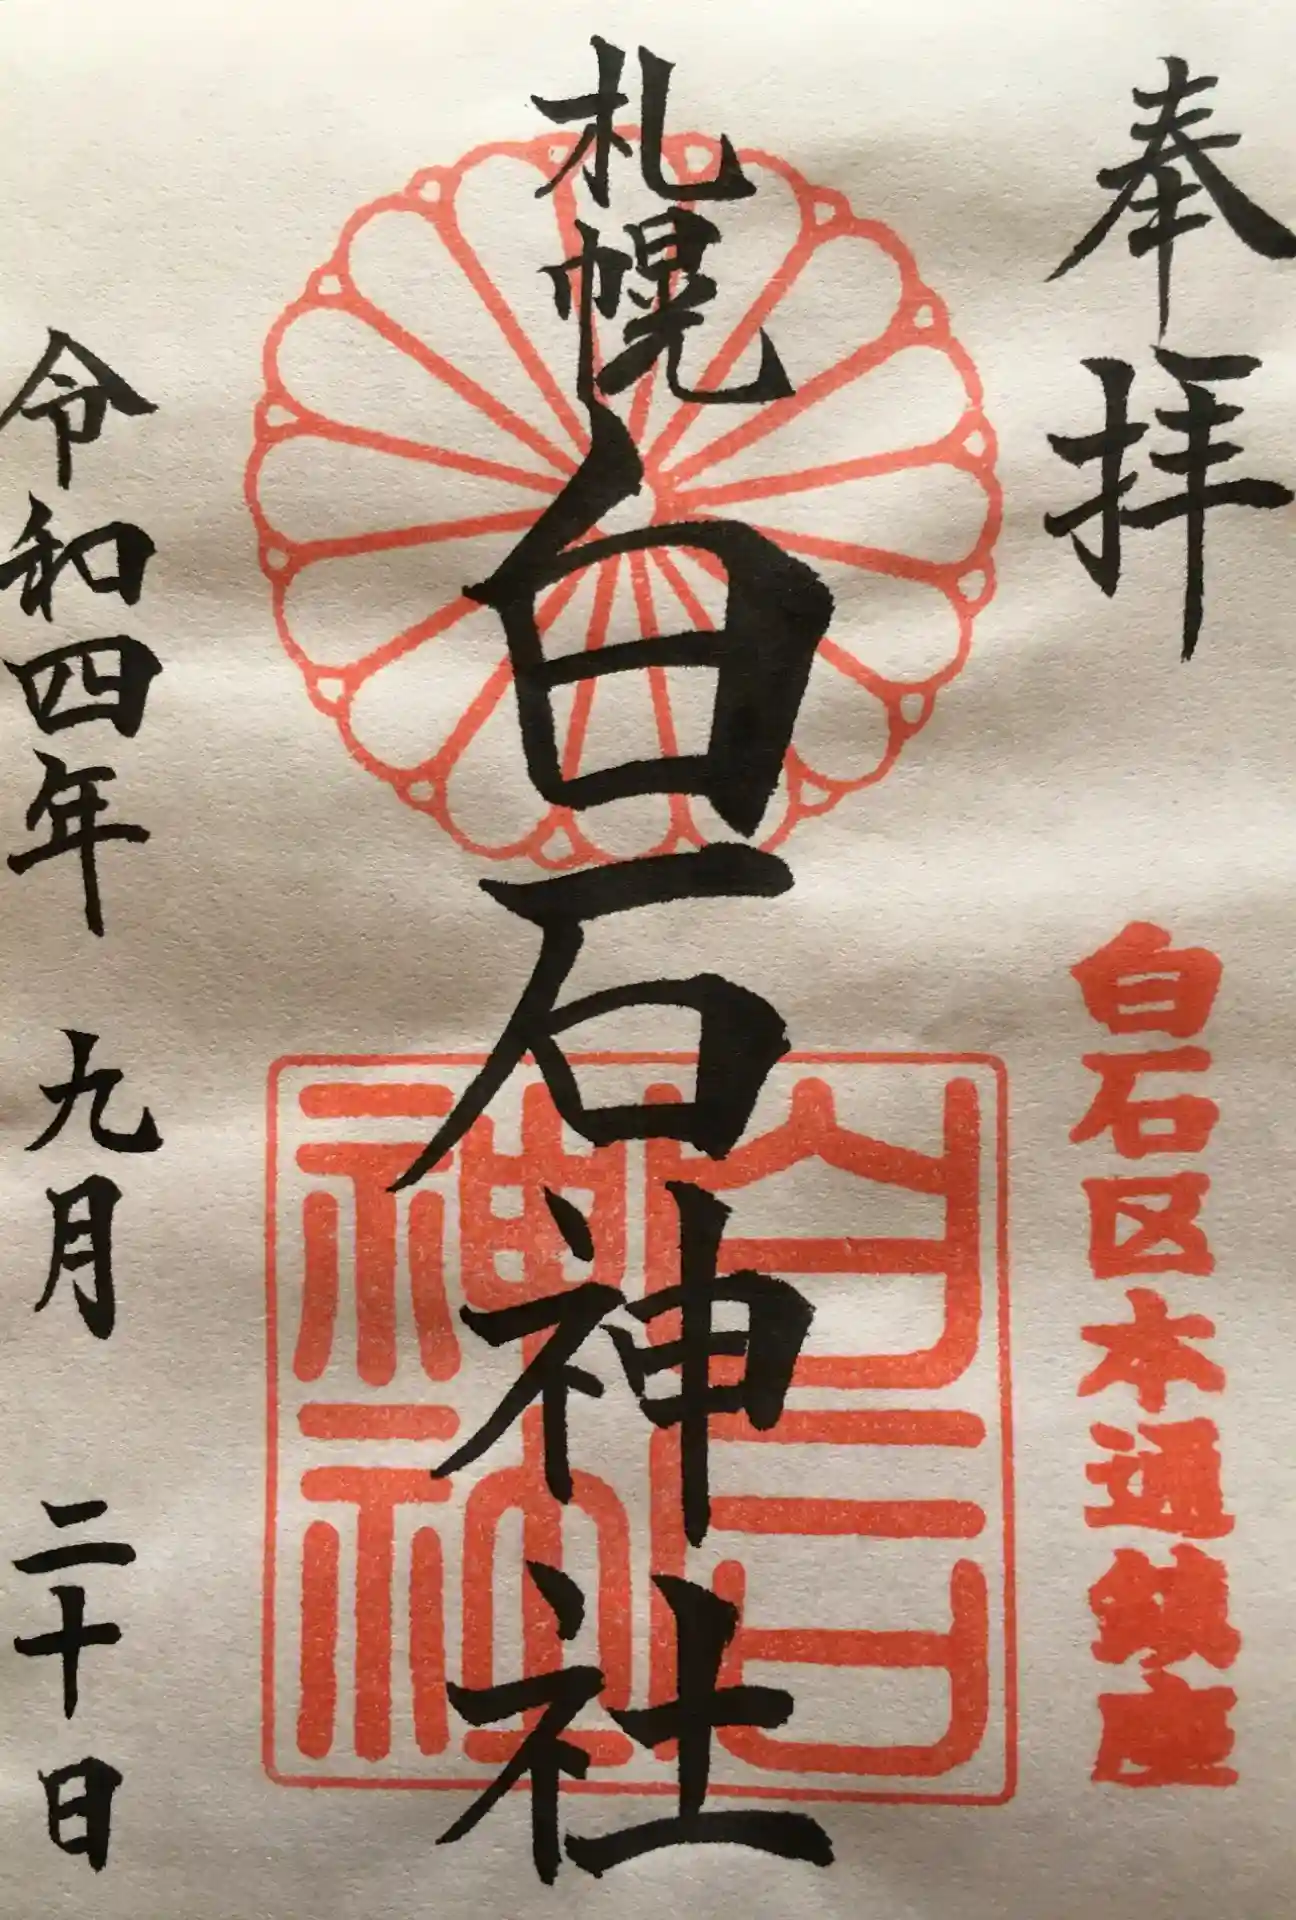 奉拝
白石区本通鎮座
札幌白石神社
白石神社
令和四年 九月 二十日